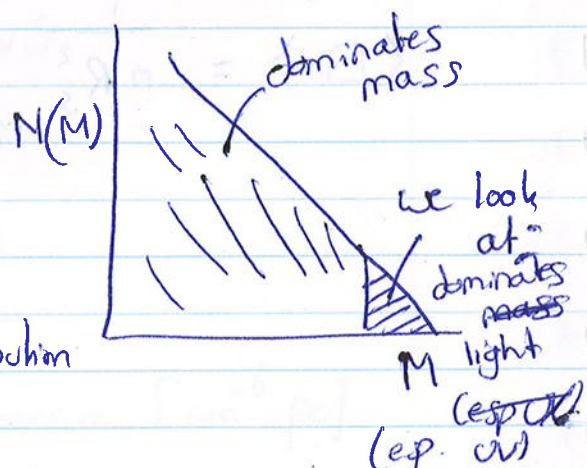 dominates
mass
N(M)
we look
at
dominates
mass
light
M
(esp UV)
(esp. UV)